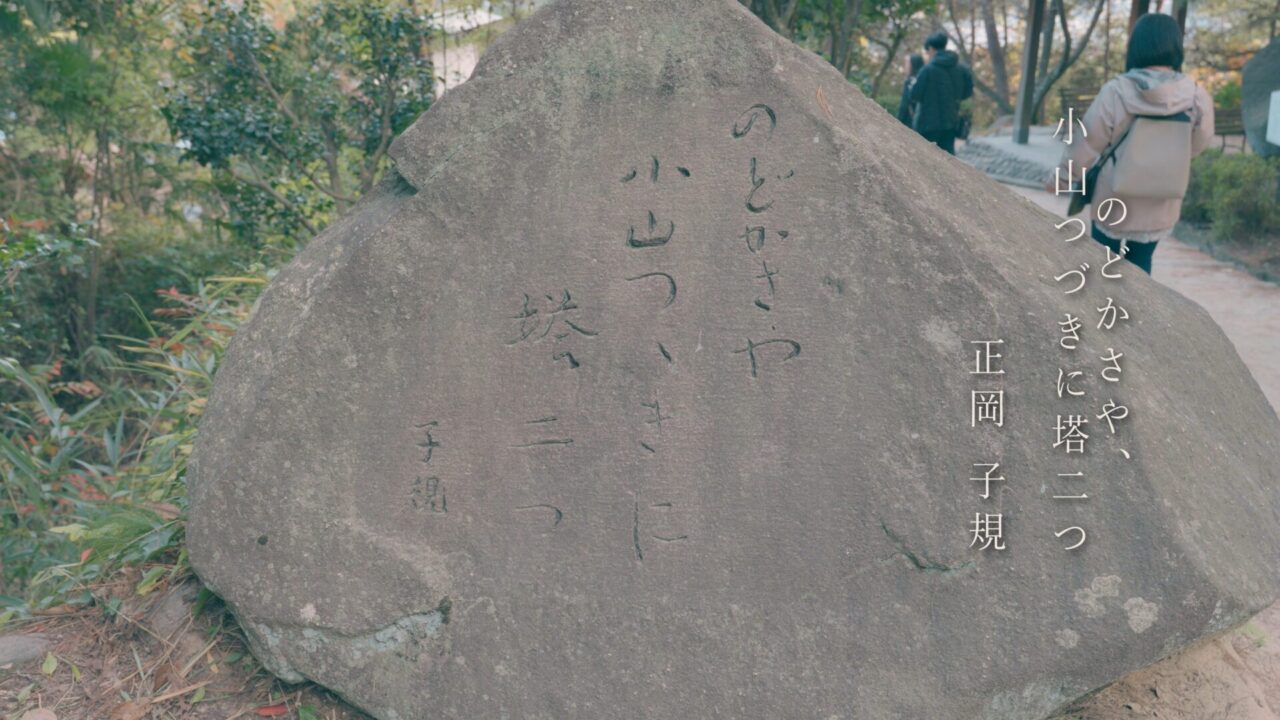 のどかさや
小山つゝきに
塔二つ
子規
のどかさや、
小山つづきに塔二つ
正岡 子規